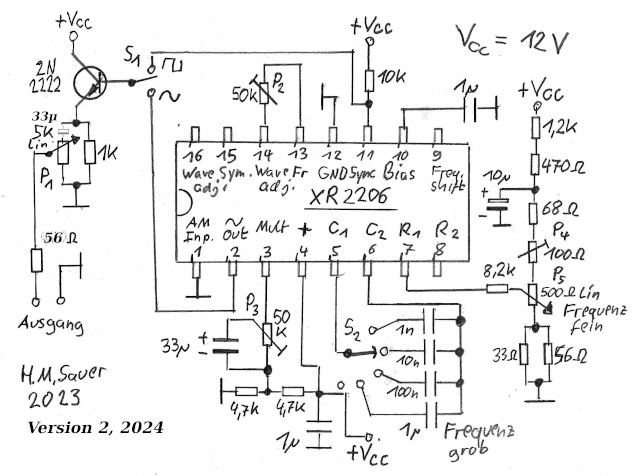 +Vcc
S1
2N
2222
33µ
5K
Lin.
P1
1K
56Ω
Ausgang
50k
P2
+Vcc
10k
1µ
Vcc = 12V
+Vcc
1,2k
470Ω
10µ
+
-
68Ω
P4
100Ω
P5
500Ω Lin
Frequenz
fein
8,2k
33Ω
56Ω
16 15 14 13 12 11 10 9
Wave Sym. Wave Fr GND Sync Bias Freq.
adj. adj. shift
XR2206
AM ~ Mult + C1 C2 R1 R2
Inp. Out
1 2 3 4 5 6 7 8
P3
50
K
33µ
+
-
4,7k
4,7k
1µ
+Vcc
S2
1n
10n
100n
1µ
Frequenz
grob
H.M. Sauer
2023
Version 2, 2024